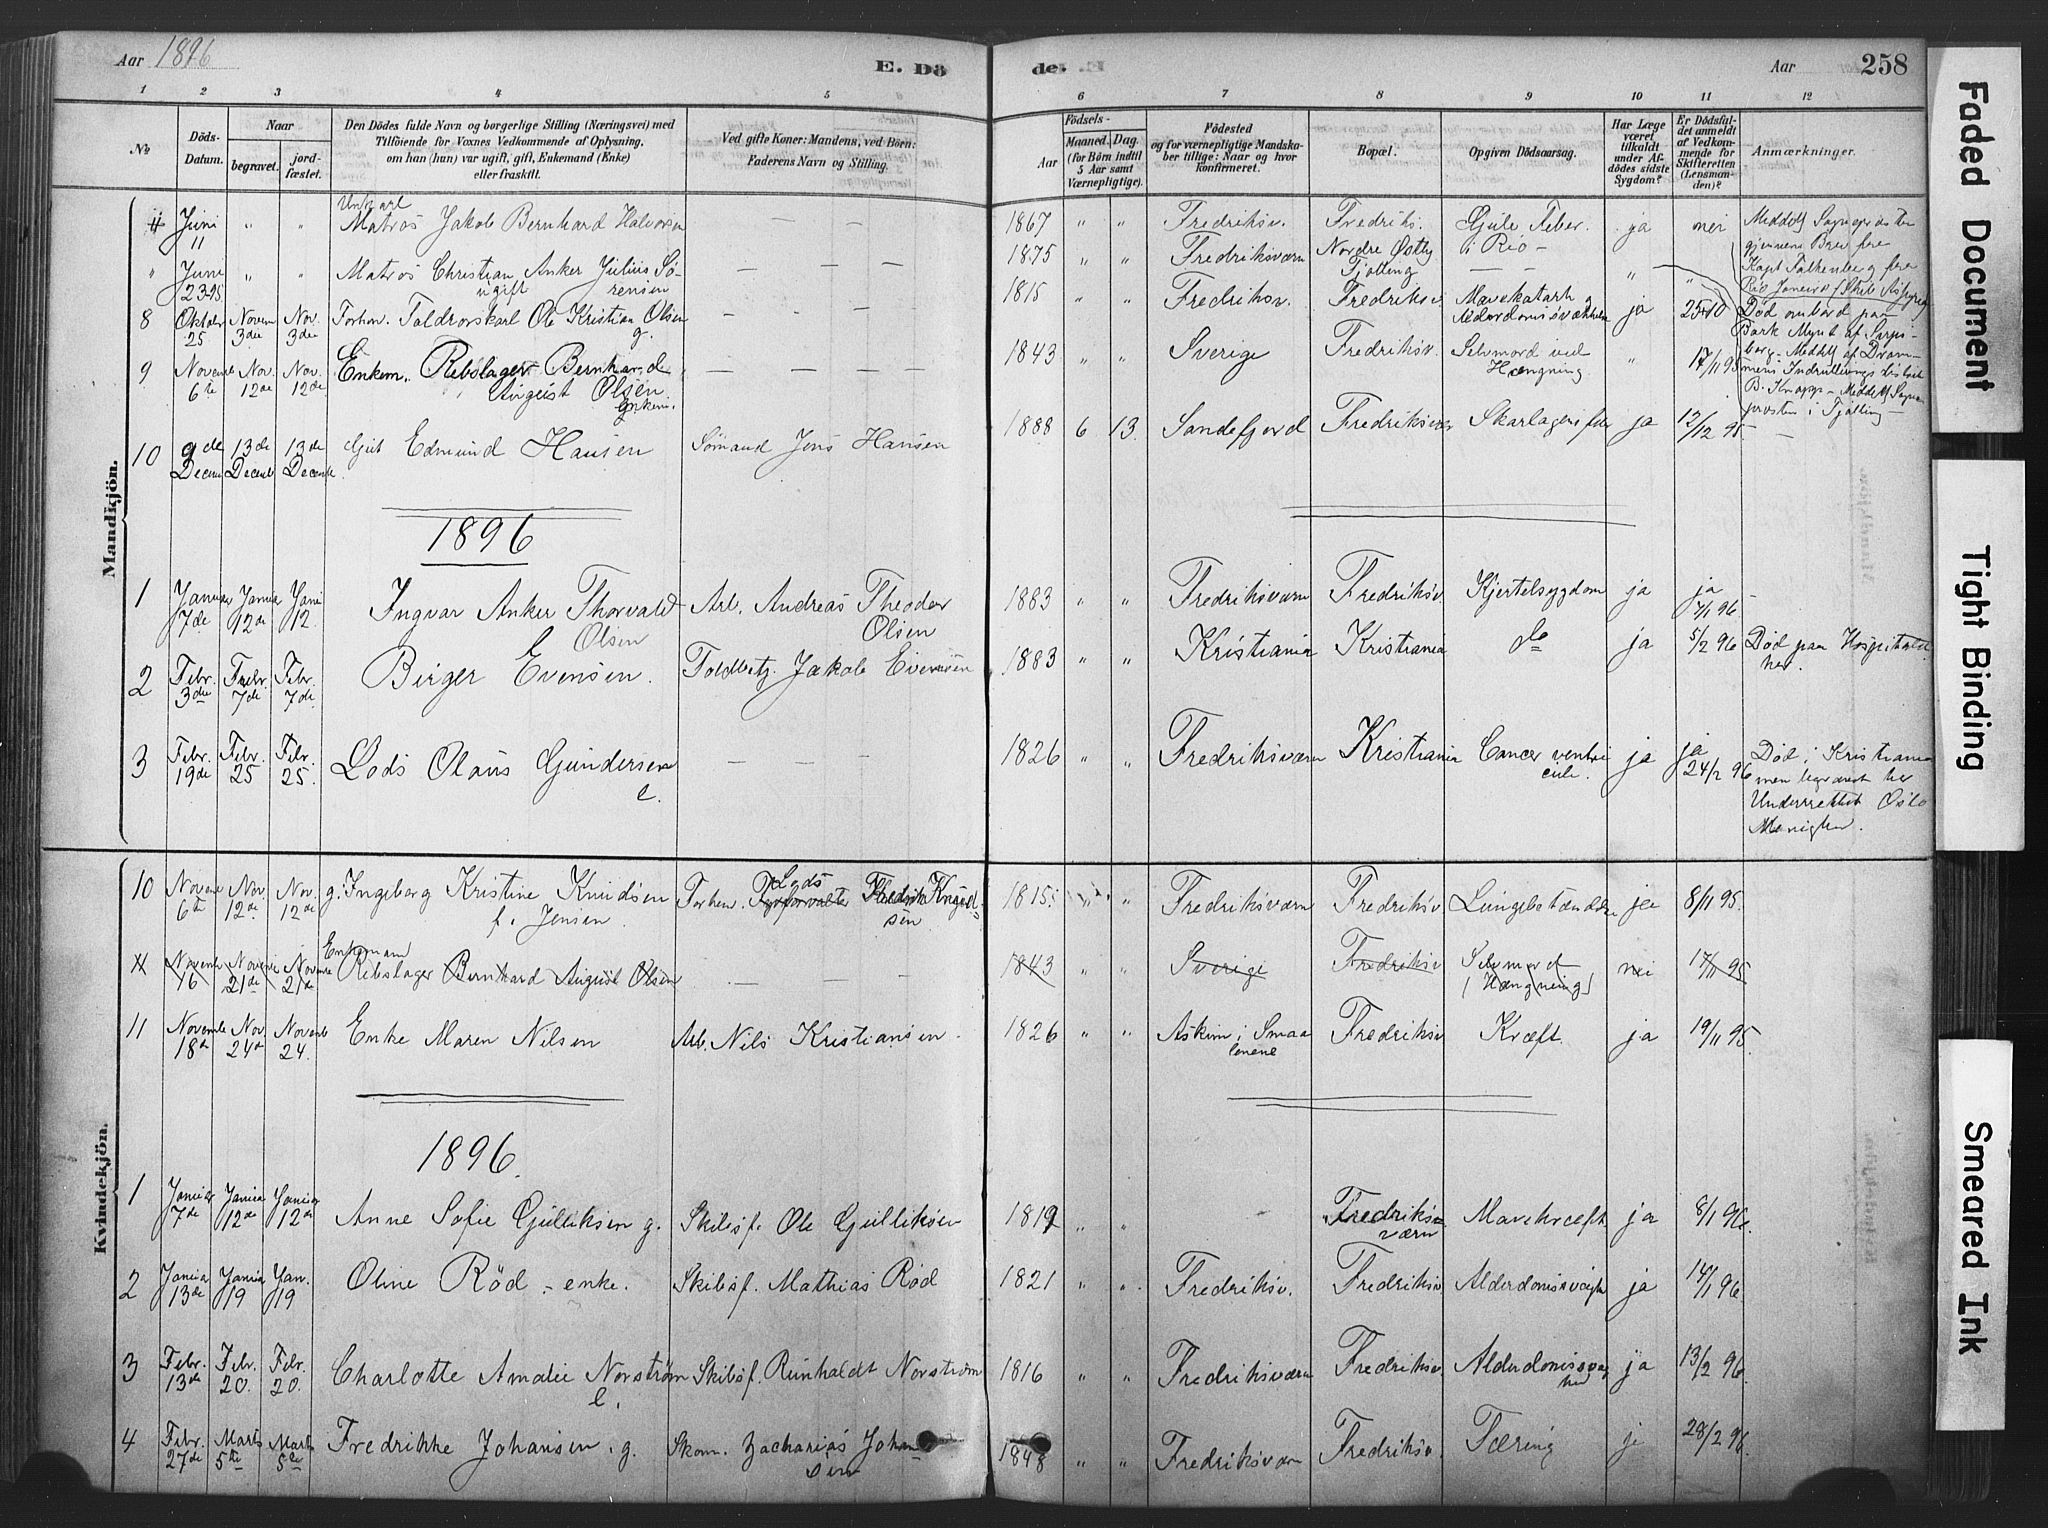 Aar 1896
E. Dö
de.
Aar
258
1 2 3 4 5 6 7 8 9 10 11 12
№
Döds-Datum.
Naar
begravet.
jordfæstet.
Den Dödes fulde Navn og borgerlige Stilling (Næringsvei) med
Tilföiende for Voxnes Vedkommende af Oplysning,
om han (hun) var ugift, gift, Enkemand (Enke)
eller fraskilt.
Ved gifte Koner: Mandens, ved Börn:
Faderens Navn og Stilling.
Födsels-
Aar
Maaned. Dag.
(for Börn indtil
5 Aar samt
Værnepligtige).
Födested
og for værnepligtige Mandska-
ber tillige: Naar og hvor
konfirmeret.
Bopæl.
Opgiven Dödsaarsag.
Har Læge
været
tilkaldt
under Af-
dödes sidste
Sygdom?
Er Dödsfal-
det anmeldt
af Vedkom-
mende for
Skifteretten
(Lensman-
den)?
Anmærkninger.
Mandkjön.
Juni 11 " " Ungkarl Matros Jakob Bernhard Halvorsen — — 1867 " " Fredriksv. Fredriks. Gule Feber i Rio — ja nei
" Juni 23-95 " " Matros Christian Anker Julius Sörensen ugift — — — 1875 " " Fredriksværn Nordre Østby Tjølling — — " "
Meddelt Sognepræsten
gjennem Brev fra
Kapt Falkenberg fra
Rio Janeiro
8 Oktober 25 Novem 3die Nov. 3die Forhen. Toldrorskarl Ole Kristian Olsen g. — — — 1815 " " Fredriksv. Fredriksv Mavekatarh og Alderdomssvækkelse ja 25-10
Død ombord paa
Bark Mynt af Sarps-
berg - Meddelt af Dram-
mens Indrulleringsdistrikt
B. Knapp - Meddelt Sogne-
presten i Tjølling —
9 Novemb 6te Nov. 12de Nov. 12de Enkem. Rebslager Bernhard August Olsen Enkem. — — — — 1843 " " Sverige Fredriksv. Selvmord ved Hængning " 17/11 95
10 9de Decem 13de Decemb 13de Decemb Gut Edmund Hansen Sømand Jens Hansen 1888 6 13 Sandefjord Fredriksv Skarlagensfeber ja 12/12 95. —
1896
1 Januar 7de Januar 12de Jani 12 Ingvar Anker Thorvald Olsen Arb. Andreas Theodor Olsen 1883 " " Fredriksværn Fredriksv. Kjertelsygdom ja ja 7/1 96
2 Febr. 3die Febr. 7de Febr. 7de Birger Evensen. Toldbetj. Jakob Evensen 1883 " " Kristiania Kristiania do ja 5/2 96 Død paa Hospitalet her.
3 Febr. 19de Febr. 25 Febr. 25. Lods Olaus Gundersen e. — — — 1826 " " Fredriksværn Kristiania Cancer ventriculi. ja ja 24/2 96
Død i Kristiania
men begravet her
Underrettet Oslo
Menighed.
Kvindekjön.
10 Novemb 6te Nov 12de Nov. 12de g. Ingeborg Kristine Knudsen f. Jensen Forhen. Lods Fyrforvalter Fredrik Knudsen 1815 " " Fredriksværn Fredriksv Lungebetændelse ja 8/11 95.
11 Novemb 16 Novemb 21de Novemb 21de Enkemand Rebslager Bernhard August Olsen — — — 1843 " " Sverige Fredriksv Selvmord (Hængning) nei 17/11 95
11 Novemb 18de Nov 24de Novemb 24. Enke Maren Nilsen Arb. Nils Kristiansen 1826 " " Askim i Smaalenene Fredriksv Kræft. ja 19/11 95.
1896.
1 Januar 7de Januar 12de Januar 12de Anne Sofie Gulliksen g. Skibsf. Ole Gulliksen 1819 " " Fredriksværn Mavekræft ja 8/1 96.
2 Januar 13de Januar 19 Jan. 19 Oline Rød - enke. Skibsf. Mathias Rød 1821 " " Fredriksv. Fredriksv Alderdomssvaghed ja 14/1 96.
3 Febr. 13de Febr. 20. Febr. 20. Charlotte Amalie Norstrøm e. Skibsf. Reinhaldt Norstrøm 1816 " " Fredriksværn Fredriksv. Alderdomssvaghed ja 13/2 96.
4 Febr. 27de Marts 5te Marts 5te Fredrikke Johansen. g. Skom. Zacharias Johansen 1848 " " Fredriksværn Fredriksv. Tæring ja 28/2 96.
Faded Document
Tight Binding
Smeared Ink